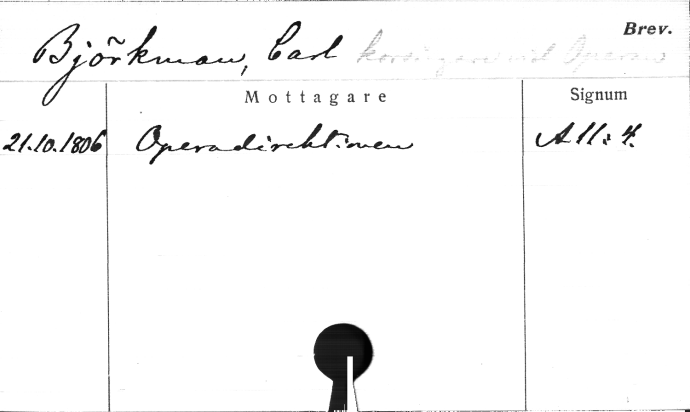 Brev.
Björkman, Carl korsångare vid Operan
Mottagare Signum
21.10.1806 Operadirektionen A II: 4.